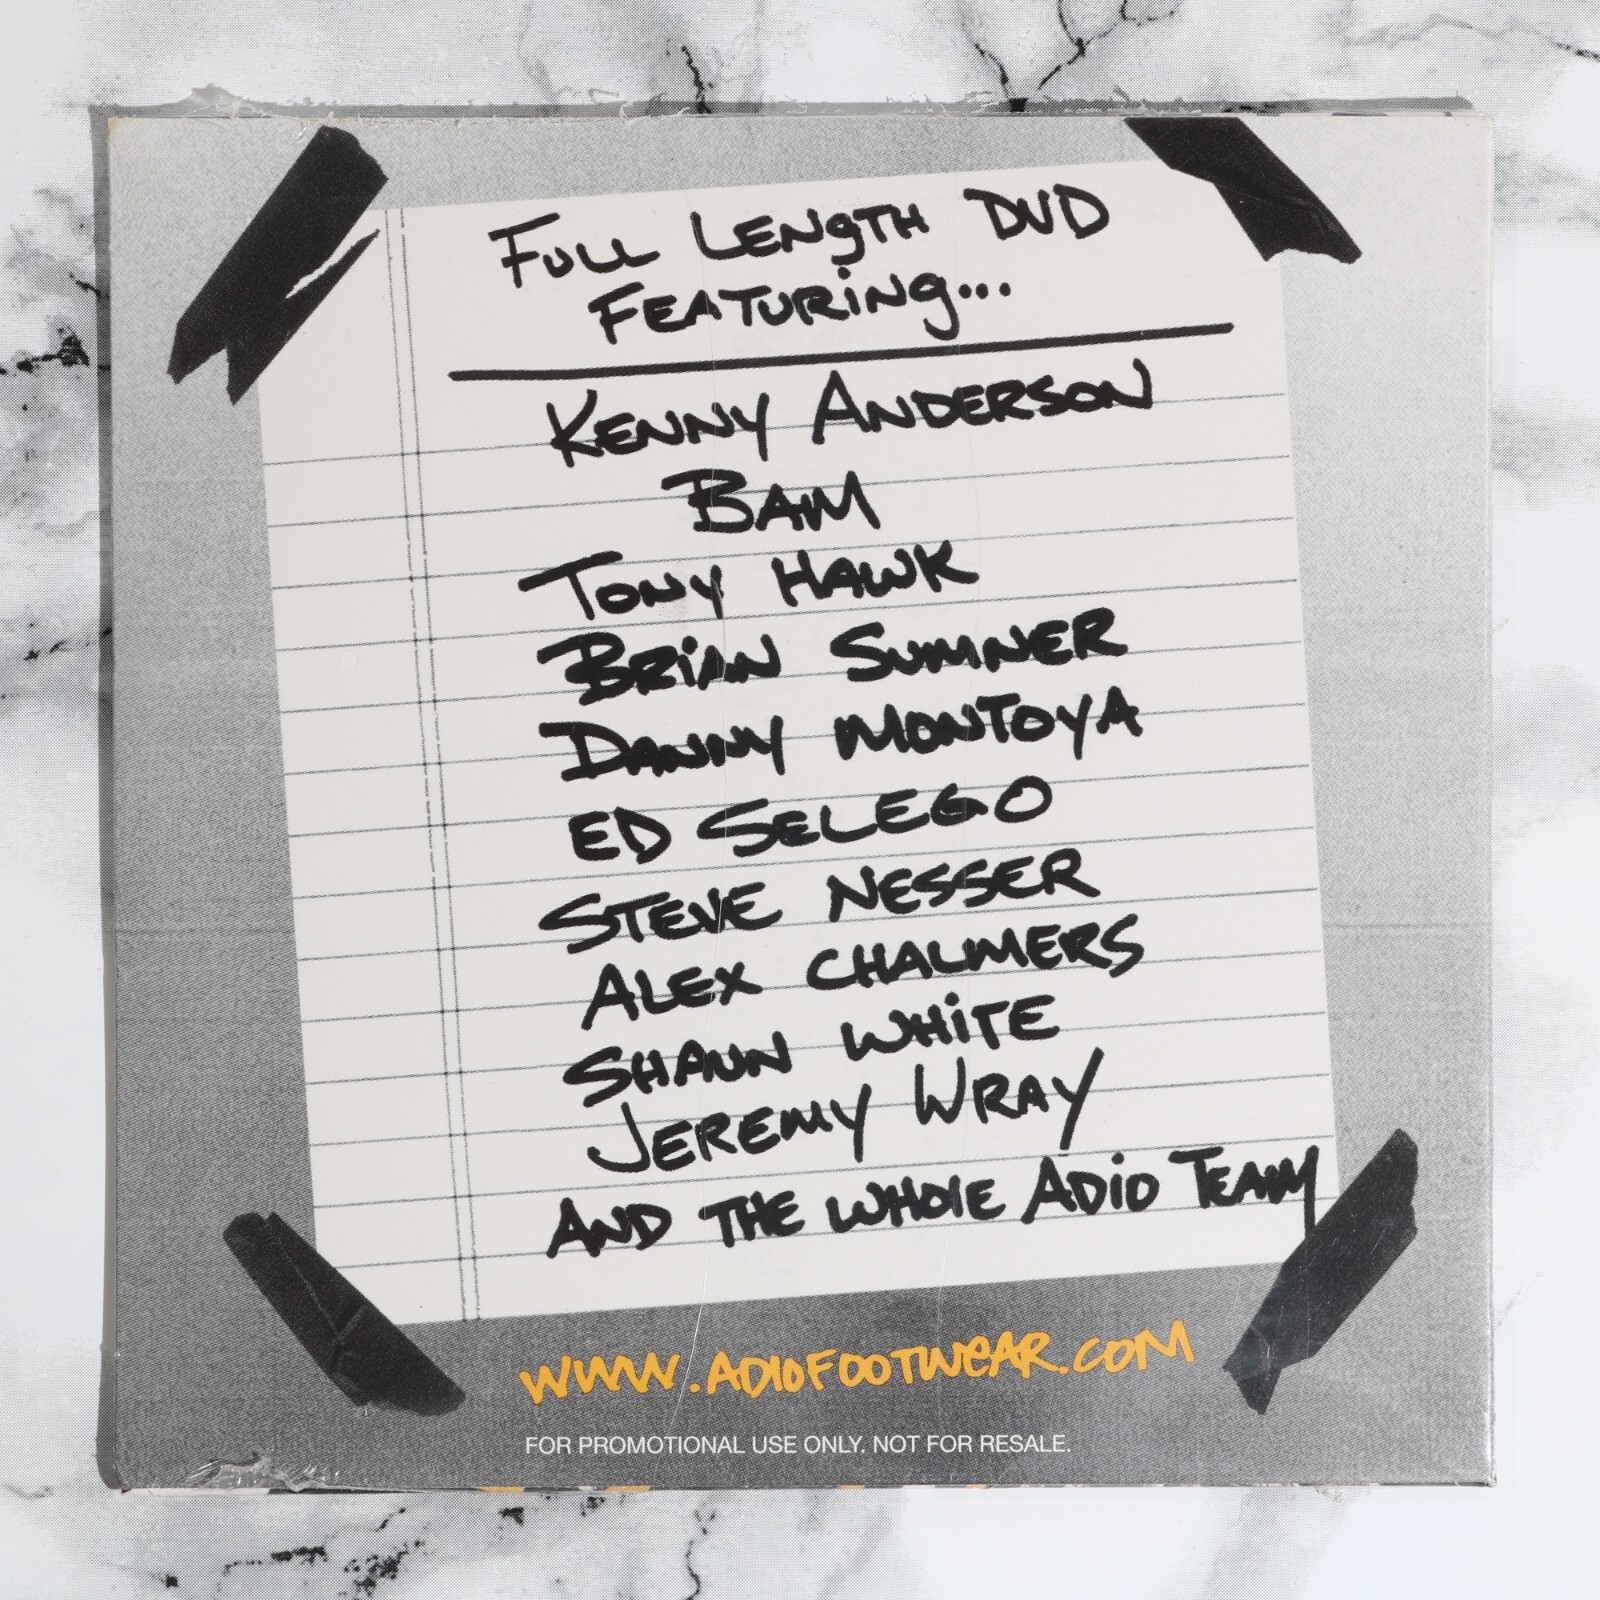 FULL LENGTH DVD
FEATURING...
KENNY ANDERSON
BAM
TONY HAWK
BRIAN SUMNER
DANNY MONTOYA
ED SELEGO
STEVE NESSER
ALEX CHALMERS
SHAUN WHITE
JEREMY WRAY
AND THE WHOLE ADIO TEAM
WWW.ADIOFOOTWEAR.COM
FOR PROMOTIONAL USE ONLY. NOT FOR RESALE.